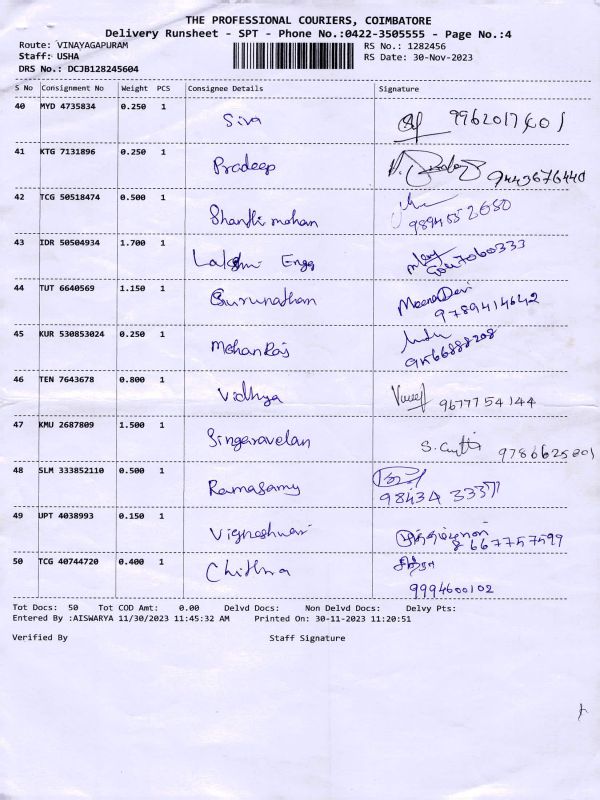 THE PROFESSIONAL COURIERS, COIMBATORE
Delivery Runsheet - SPT - Phone No.:0422-3505555 - Page No.:4
Route: VINAYAGAPURAM RS No.: 1282456
Staff: USHA RS Date: 30-Nov-2023
DRS No.: DCJB128245604
S No Consignment No Weight PCS Consignee Details Signature
40 MYD 4735834 0.250 1 Siva
41 KTG 7131896 0.250 1 Pradeep 9443676440
42 TCG 50518474 0.500 1 Shanthi mohan 9894552650
43 IDR 50504934 1.700 1 Lakshmi Engg
44 TUT 6640569 1.150 1 Gurunatham MeenaDevi
9789414642
45 KUR 530853024 0.250 1 MohanRaj
9566888208
46 TEN 7643678 0.800 1 Vidhya 9677754144
47 KMU 2687809 1.500 1 Singaravelan 9786625801
48 SLM 333852110 0.500 1 Ramasamy
49 UPT 4038993 0.150 1 Vigneshwari
50 TCG 40744720 0.400 1 Chithra சித்ரா
9994600102
Tot Docs: 50 Tot COD Amt: 0.00 Delvd Docs: Non Delvd Docs: Delvy Pts:
Entered By :AISWARYA 11/30/2023 11:45:32 AM Printed On: 30-11-2023 11:20:51
Verified By Staff Signature